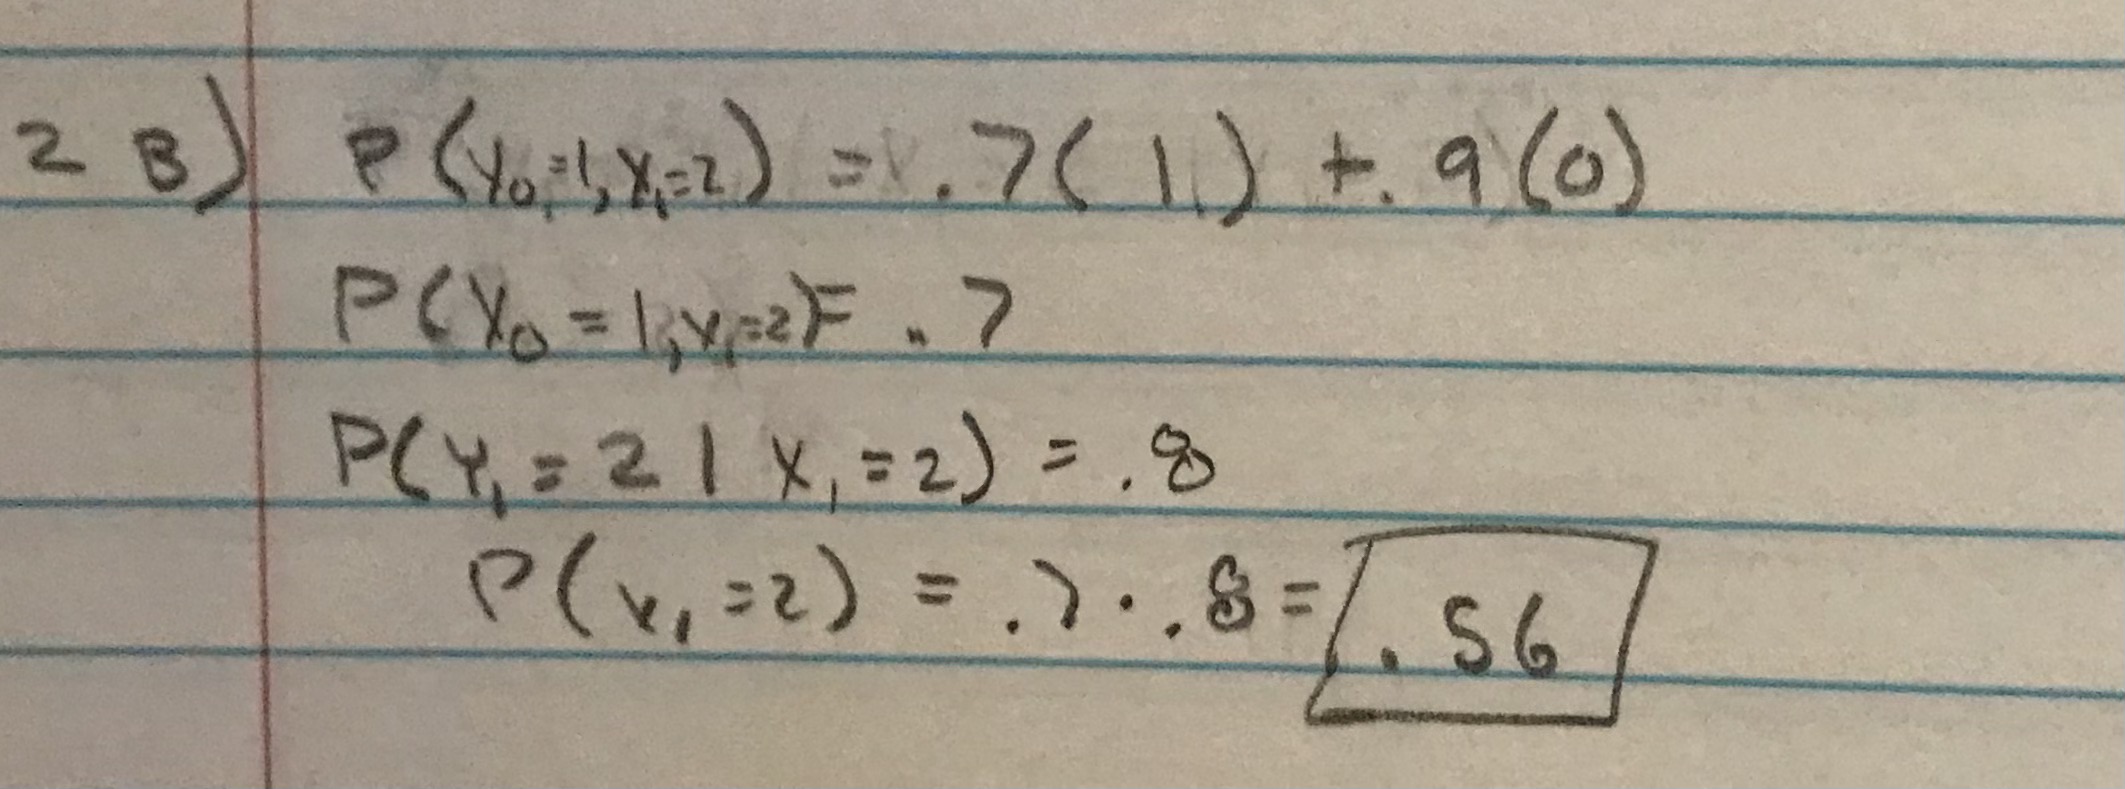 2 B) P(X₀=1, X₁=2) = .7(1) + .9(0)
P(X₀=1, X₁=2) = .7
P(Y₁=2 | X₁=2) = .8
P(X₁=2) = .7 · .8 = .56